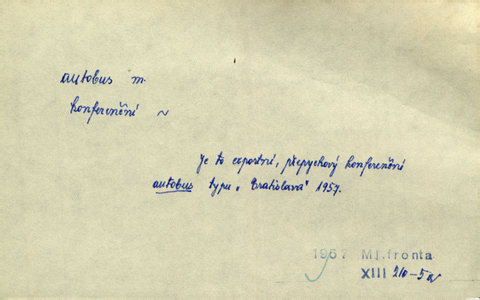 autobus m.
konferenční ~
Je to exportní, přepychový konferenční
autobus typu „Bratislava" 1957.
1957 Ml.fronta
XIII 210-5a